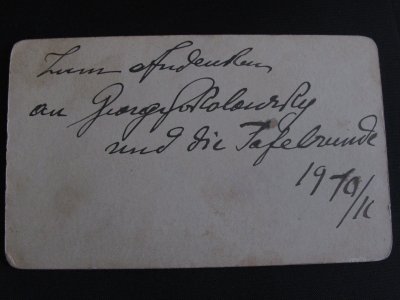 Zum Andenken
an Georg
und die Tafelrunde
1910/11